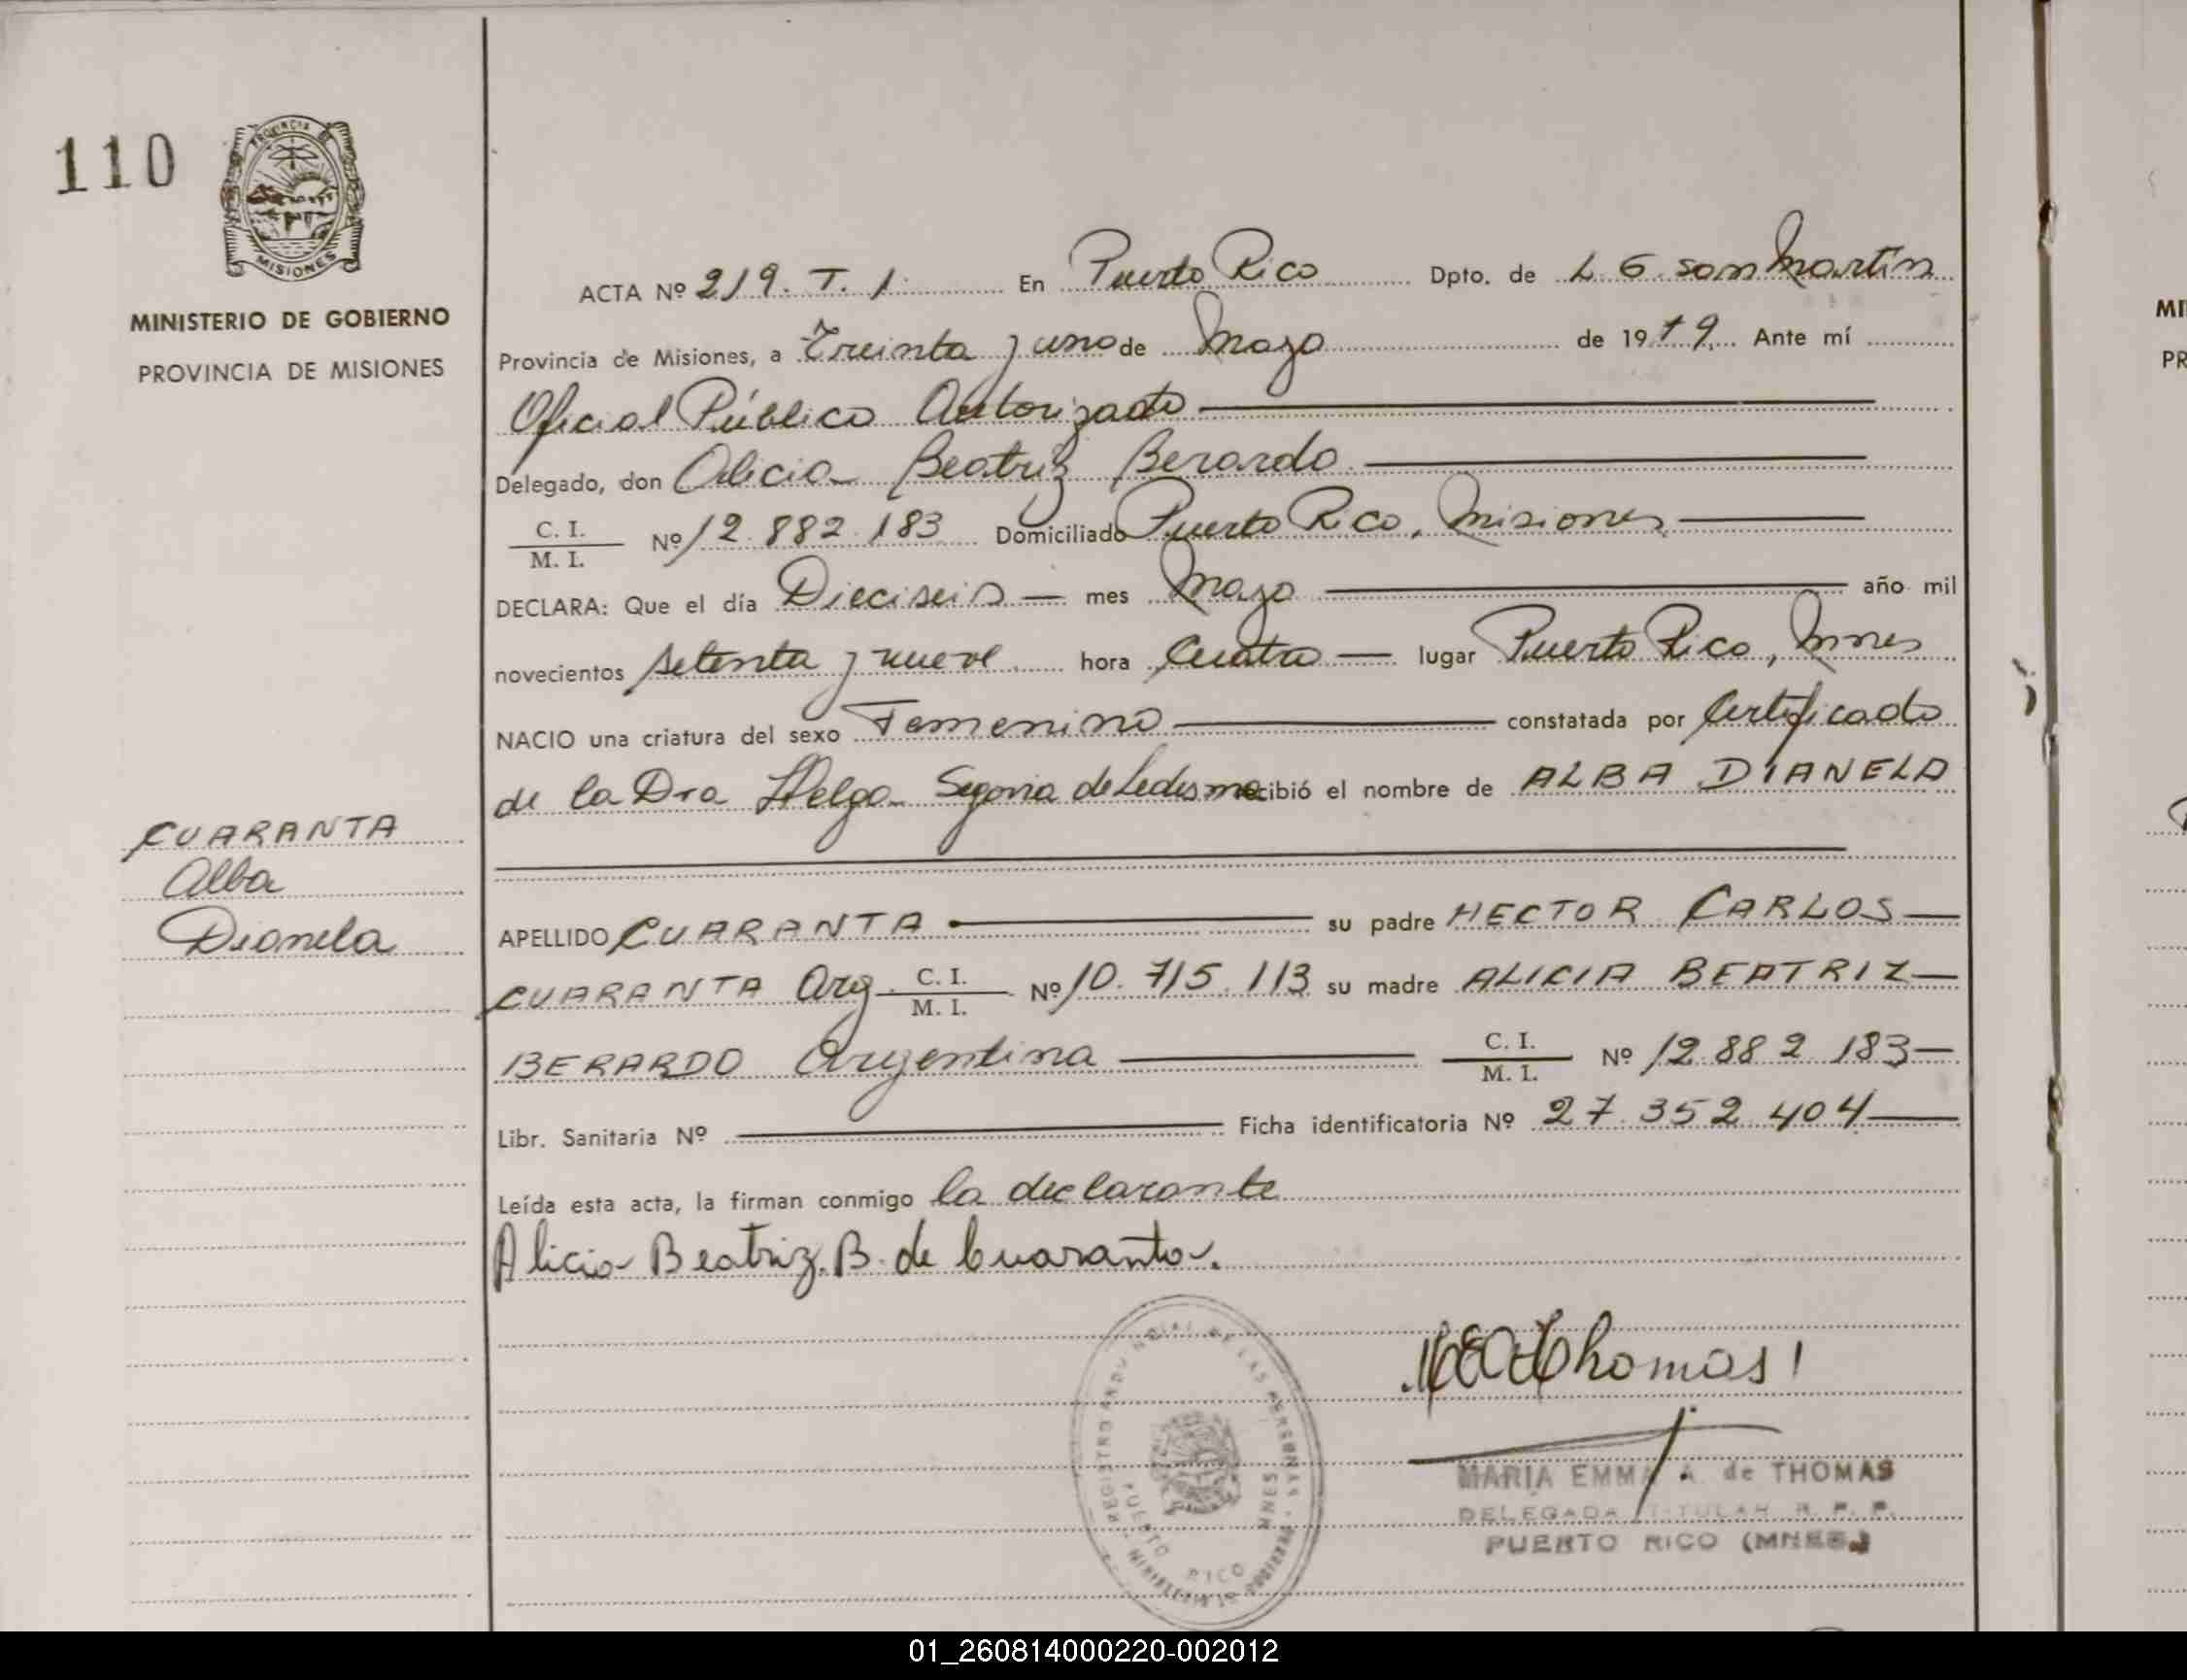 110
PROVINCIA DE
MISIONES
MINISTERIO DE GOBIERNO
PROVINCIA DE MISIONES
CUARANTA
Alba
Dianela
ACTA Nº 219. T. 1. En Puerto Rico Dpto. de L. G. san Martín
Provincia de Misiones, a Treinta y uno de Mayo de 1979. Ante mí
Oficial Público Autorizado
Delegado, don Alicia Beatriz Berardo
C. I. / M. I. Nº 12.882.183 Domiciliado Puerto Rico, Misiones
DECLARA: Que el día Dieciseis mes Mayo año mil
novecientos setenta y nueve hora Cuatro lugar Puerto Rico, Mnes
NACIO una criatura del sexo Femenino constatada por Certificado
de la Dra Helga Segovia de Ledesma recibió el nombre de ALBA DIANELA
APELLIDO CUARANTA su padre HECTOR CARLOS
CUARANTA Arg. C. I. / M. I. Nº 10.715.113 su madre ALICIA BEATRIZ
BERARDO Argentina C. I. / M. I. Nº 12.882.183
Libr. Sanitaria Nº Ficha identificatoria Nº 27.352.404
Leída esta acta, la firman conmigo la declarante
Alicia Beatriz. B. de Cuaranta.
Thomas
MARIA EMMA A. de THOMAS
DELEGADA TITULAR R. P. P.
PUERTO RICO (MNES.)
DE LAS PERSONAS
PUERTO RICO MNES
MI
PR
01_260814000220-002012